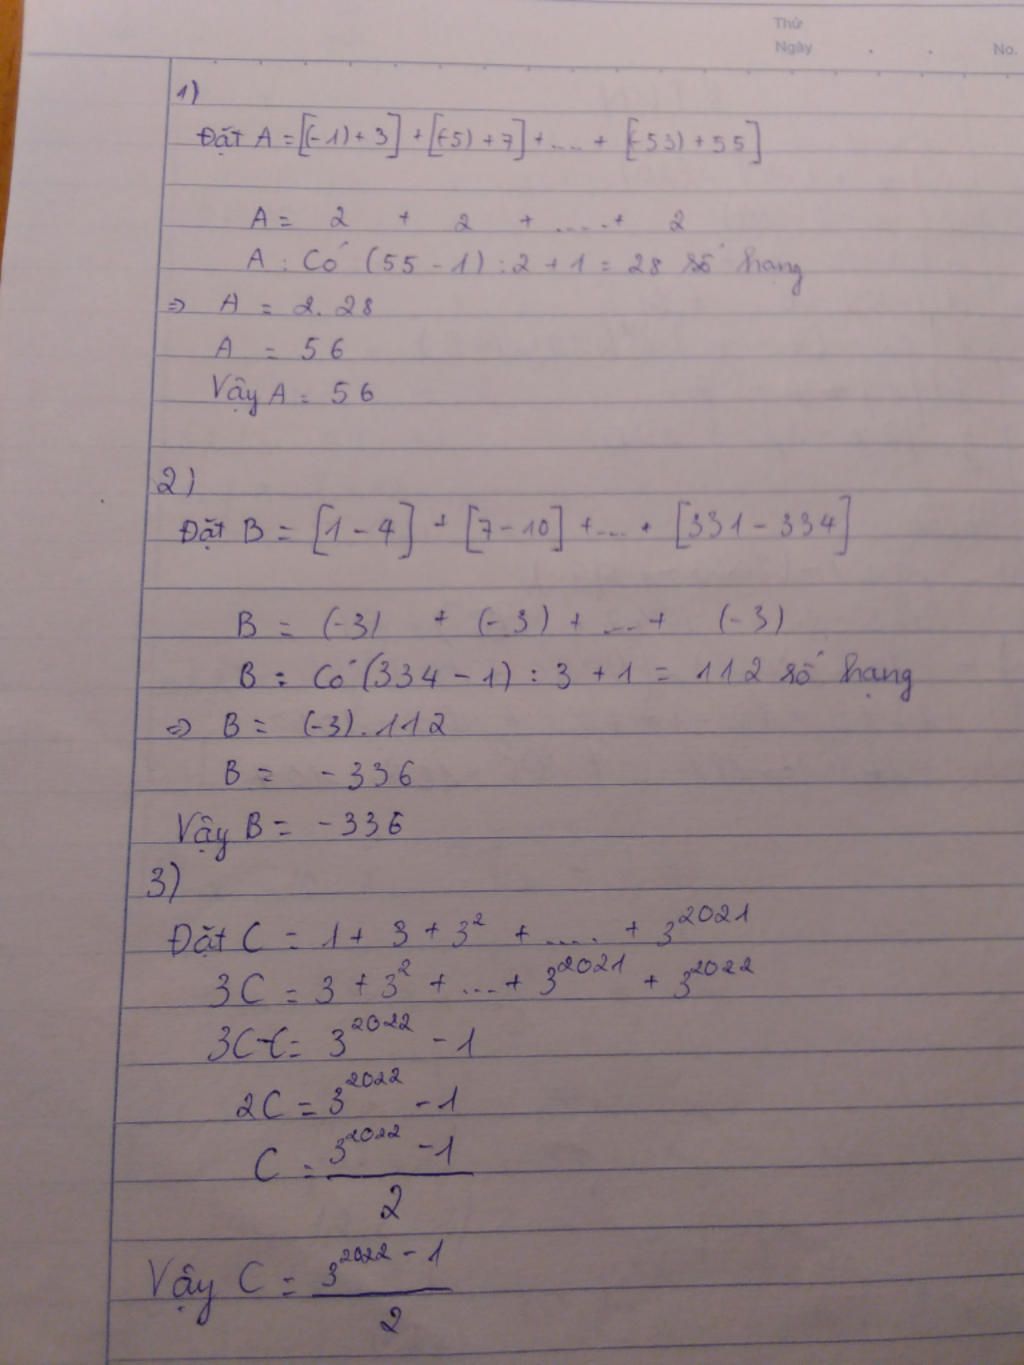 Thứ
Ngày . . No.
1)
Đặt A = [(-1) + 3] + [(-5) + 7] + .... + [(-53) + 55]
A = 2 + 2 + ..... + 2
A : Có (55 - 1) : 2 + 1 = 28 số hạng
=> A = 2.28
A = 56
Vậy A = 56
2)
Đặt B = [1 - 4] + [7 - 10] + .... + [331 - 334]
B = (-3) + (-3) + .... + (-3)
B : Có (334 - 1) : 3 + 1 = 112 số hạng
=> B = (-3).112
B = -336
Vậy B = -336
3)
Đặt C = 1 + 3 + 3² + ..... + 3²⁰²¹
3C = 3 + 3² + .... + 3²⁰²¹ + 3²⁰²²
3C-C = 3²⁰²² - 1
2C = 3²⁰²² - 1
C = 3²⁰²² - 1
2
Vậy C = 3²⁰²² - 1
2